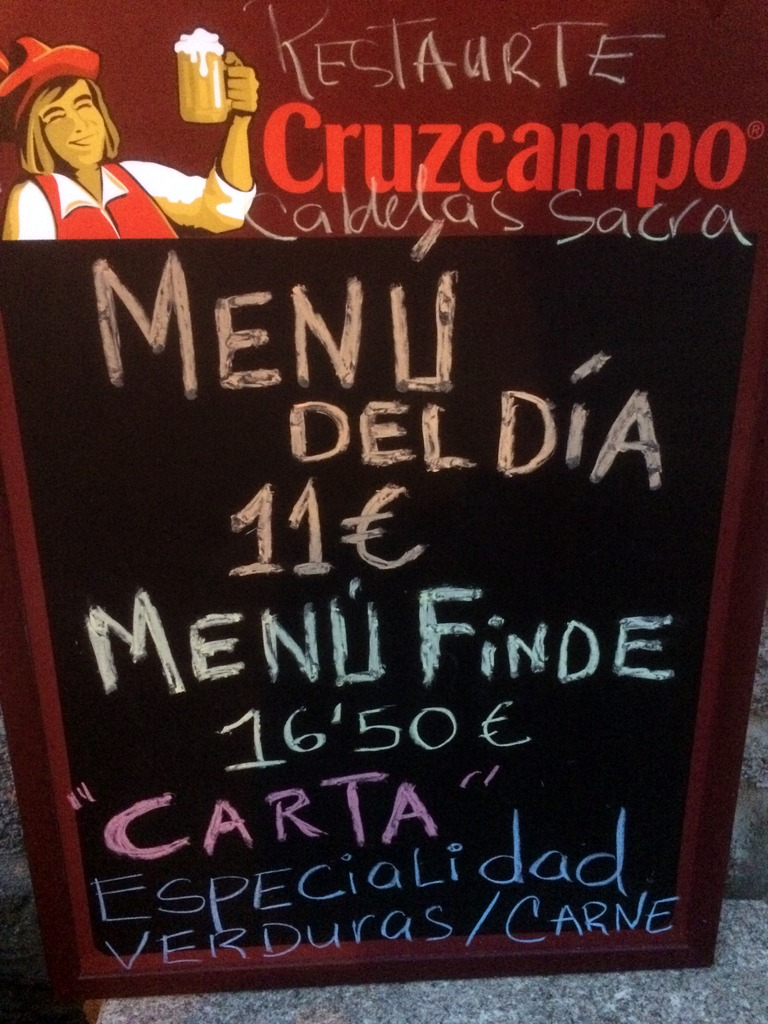 RESTAURTE
Cruzcampo®
Caldelas Sacra
MENÚ
DEL DÍA
11€
MENÚ FiNDE
16'50 €
"CARTA"
ESPEciaLidad
VERDuras/CARNE